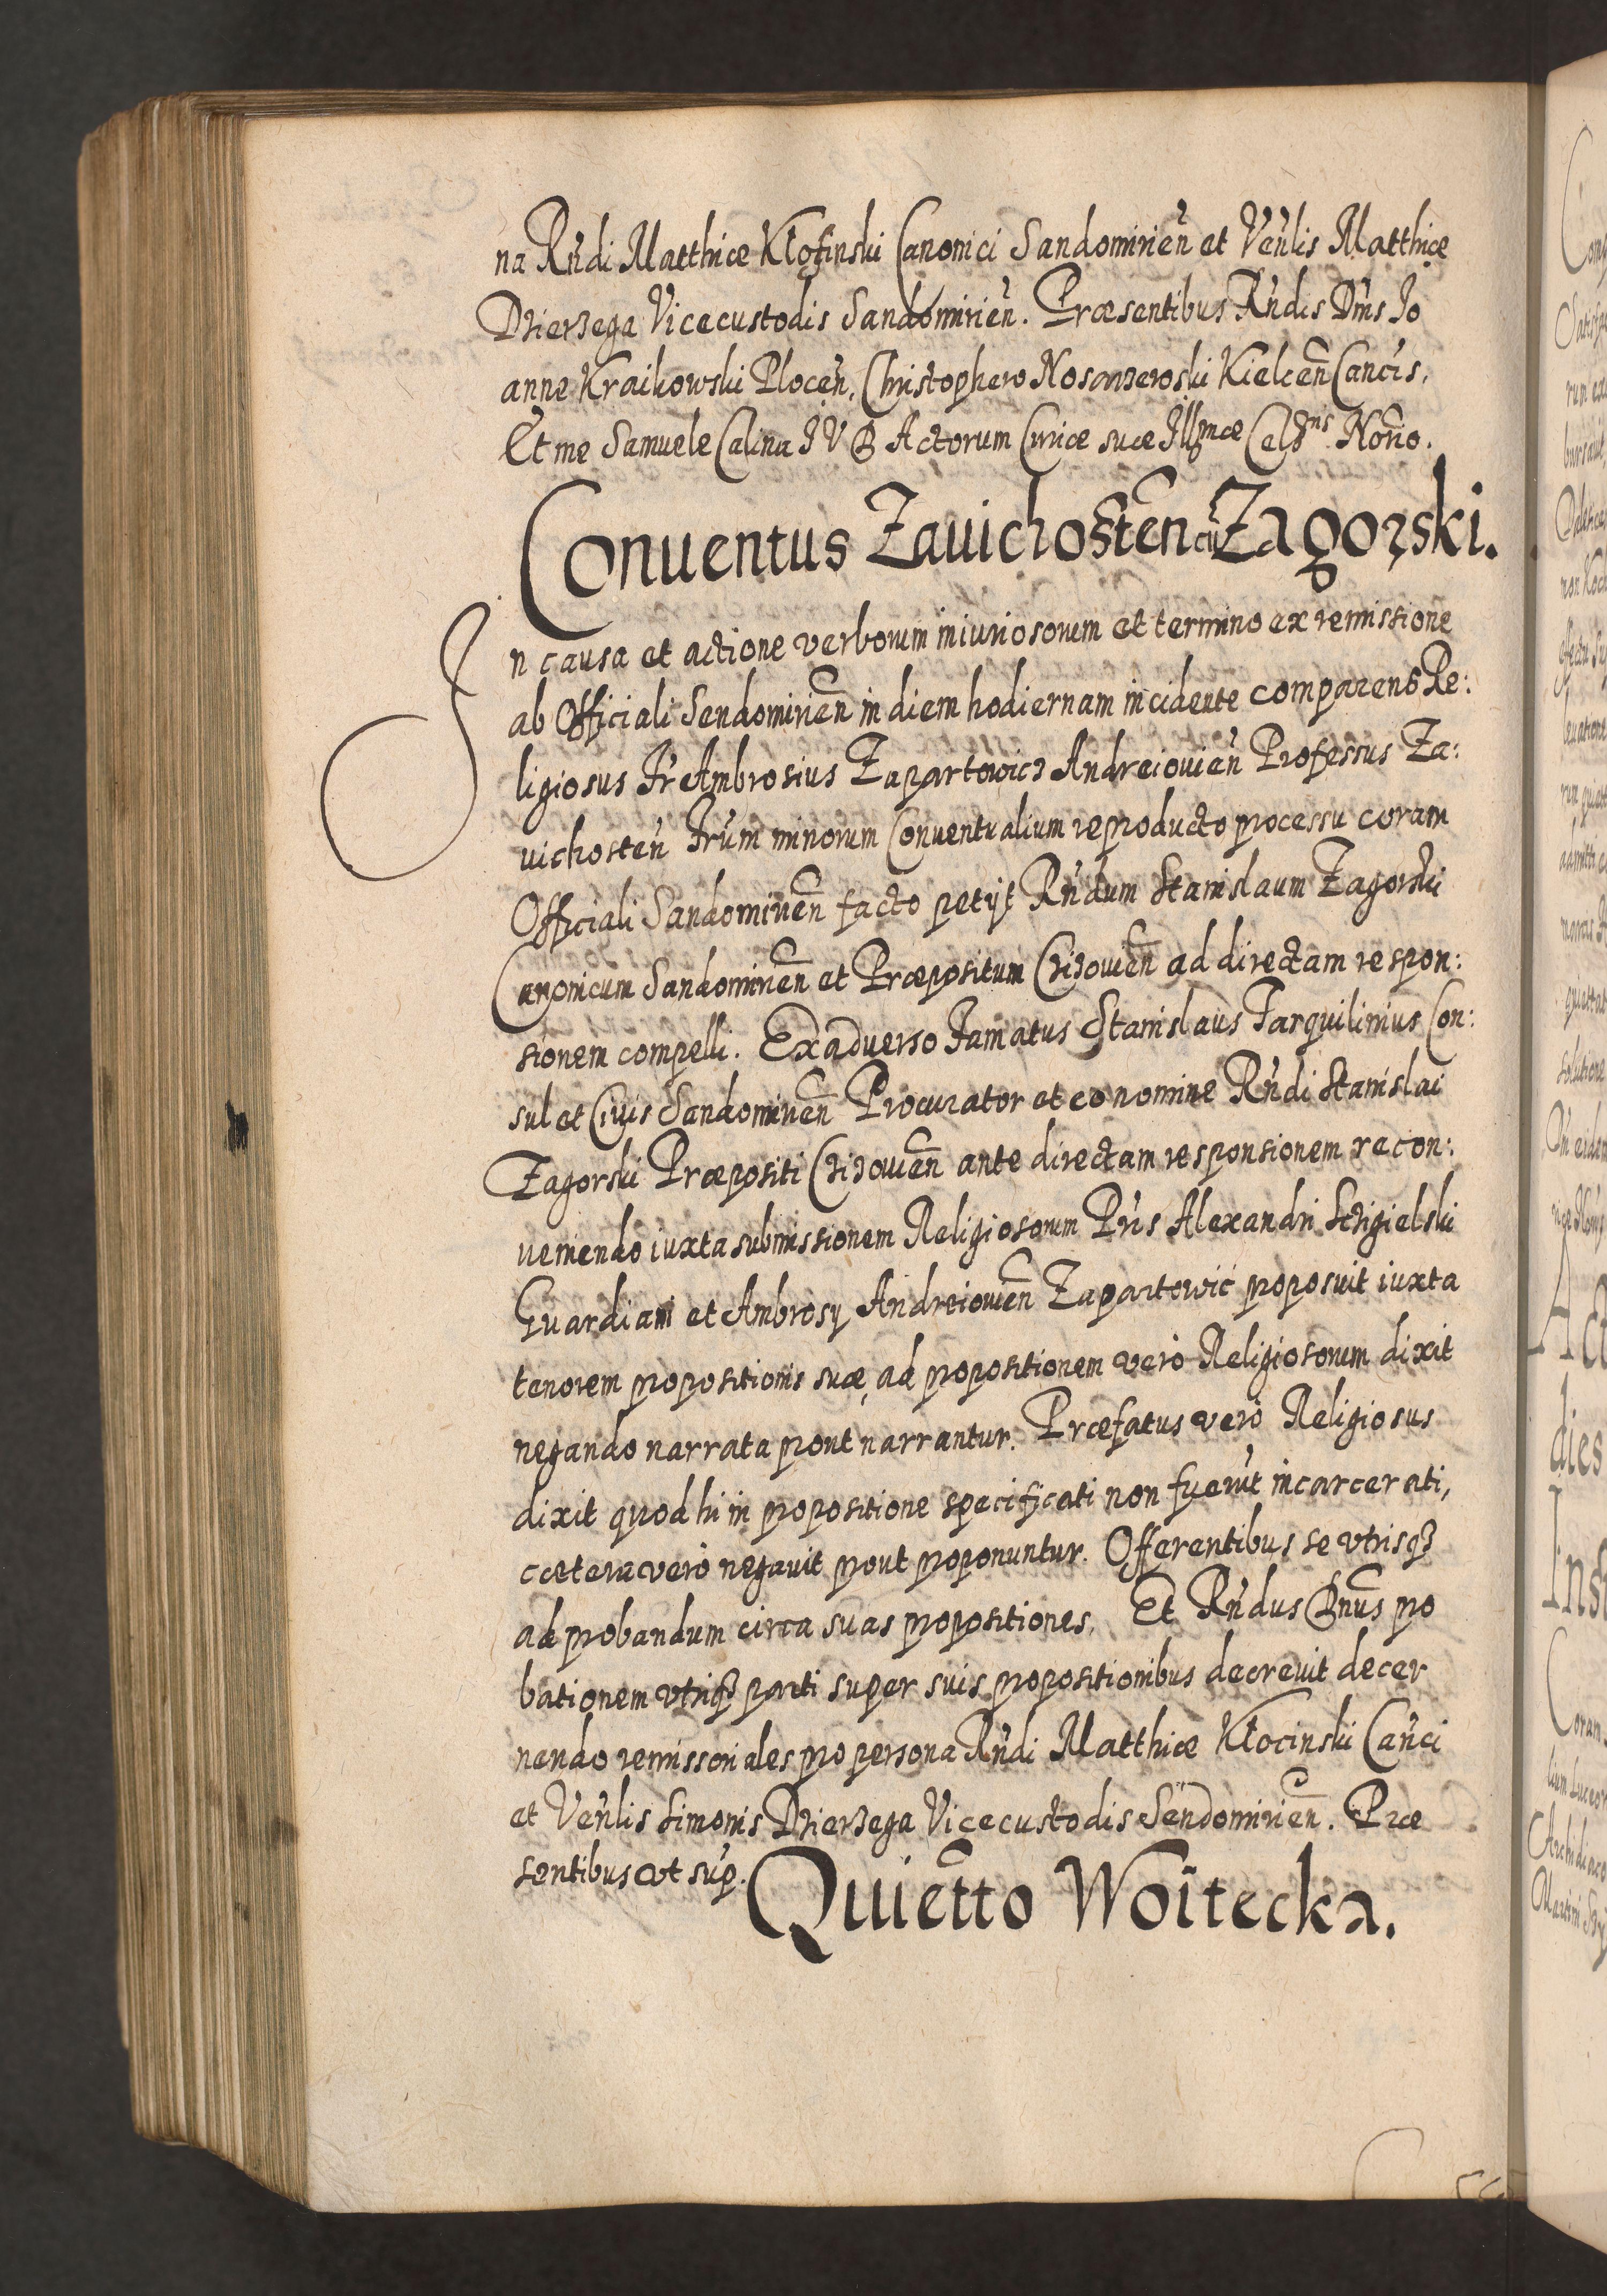 na Rndi Matthiæ Kłosinski Canonici Sandomirien et Venlis Matthiæ
Dzierzega Vicecustodis Sandomirien. Præsentibus Rndis Dnis Jo
anne Kraikowski Plocen, Christophero Nosarzewski Kielcen Cancis,
Et me Samuele Calina I V D Actorum Curiæ suæ Illmæ Celsnis Norio.
Conuentus Zauichosten cu Zagorski.
In causa et actione verborum iniuriosorum et termino ex remissione
ab Officiali Sendomirien in diem hodiernam incidente comparens Re:
ligiosus Fr Ambrosius Zapartowicz Andreiouien Professus Za:
uichosten Frum minorum Conuentualium reproducto processu coram
Officiali Sandomirien facto petijt Rndum Stanislaum Zagorski
Canonicum Sandomirien et Præpositum Chizouien ad directam respon:
sionem compelli. Ex aduerso Famatus Stanislaus Tarquilinius Con:
sul et Ciuis Sandomirien Procurator et eo nomine Rndi Stanislai
Zagorski Præpositi Chizouien ante directam responsionem recon:
ueniendo iuxta submissionem Religiosorum Pris Alexandri Sczigielski
Guardiani et Ambrosij Andreiouien Zapartowic proposuit iuxta
tenorem propositionis suæ, ad propositionem vero Religiosorum dixit
negando narrata prout narrantur. Præfatus vero Religiosus
dixit quod hi in propositione specificati non fuerut incarcerati,
cætera vero negauit prout proponuntur. Offerentibus se vtrisq3
ad probandum circa suas propositiones. Et Rndus Dnus pro
bationem vtriq3 parti super suis propositionibus decreuit decer
nando remissoriales pro persona Rndi Matthiæ Kłocinski Canci
et Venlis Simonis Dzierzega Vicecustodis Sendomirien. Præ
sentibus vt sup.
Quietto Woitecka.